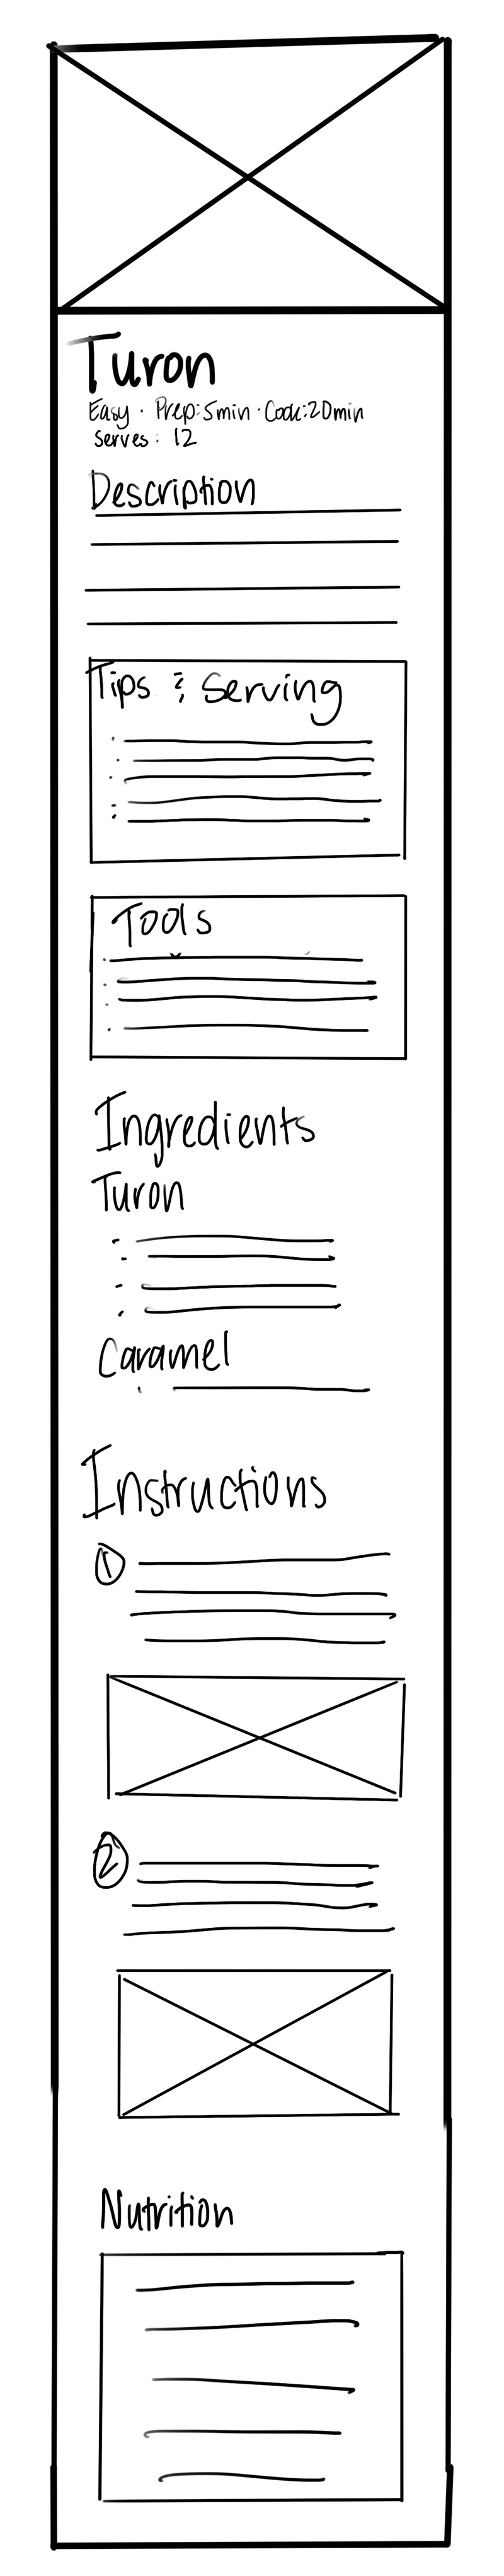 Turon
Easy · Prep: 5min · Cook: 20min
Serves: 12
Description
Tips & Serving
Tools
Ingredients
Turon
Caramel
Instructions
1
2
Nutrition